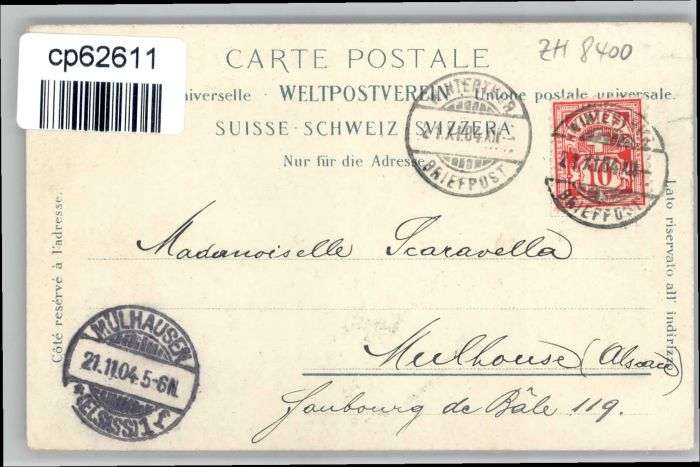 cp62611
ZH 8400
CARTE POSTALE
iverselle. WELTPOSTVEREIN. Unione postale universale.
SUISSE·SCHWEIZ·SVIZZERA.
Nur für die Adresse
WINTERTHUR
BRIEFPOST
10
WINTERTHUR
BRIEFPOST
Côté reservé à l'adresse.
Lato riservato all' indirizzo
Mademoiselle Scaravella
Mulhouse (Alsace)
faubourg de Bâle 119.
MÜLHAUSEN
21.11.04.5-6N.
*(ELSASS)1